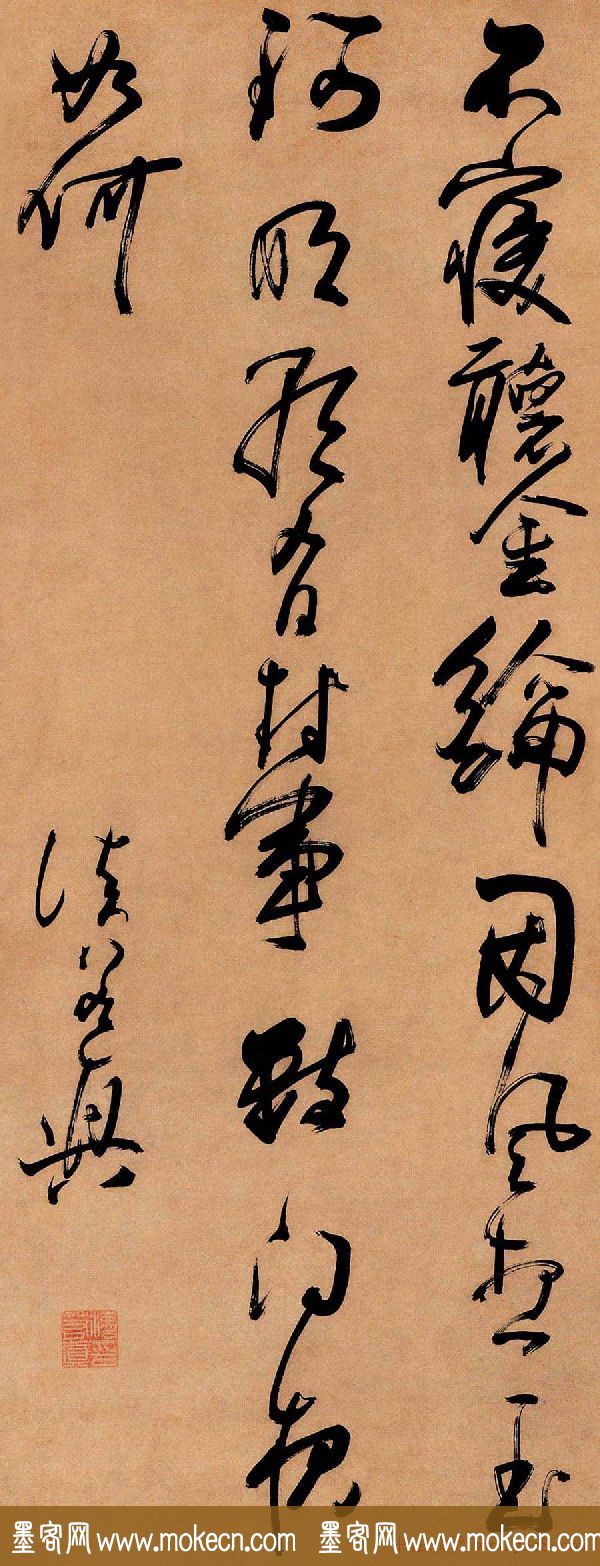 不寢聽金綸因風想玉
珂明朝有封事數問夜
如何
墨客网 www.mokecn.com 墨客网 www.mokecn.com